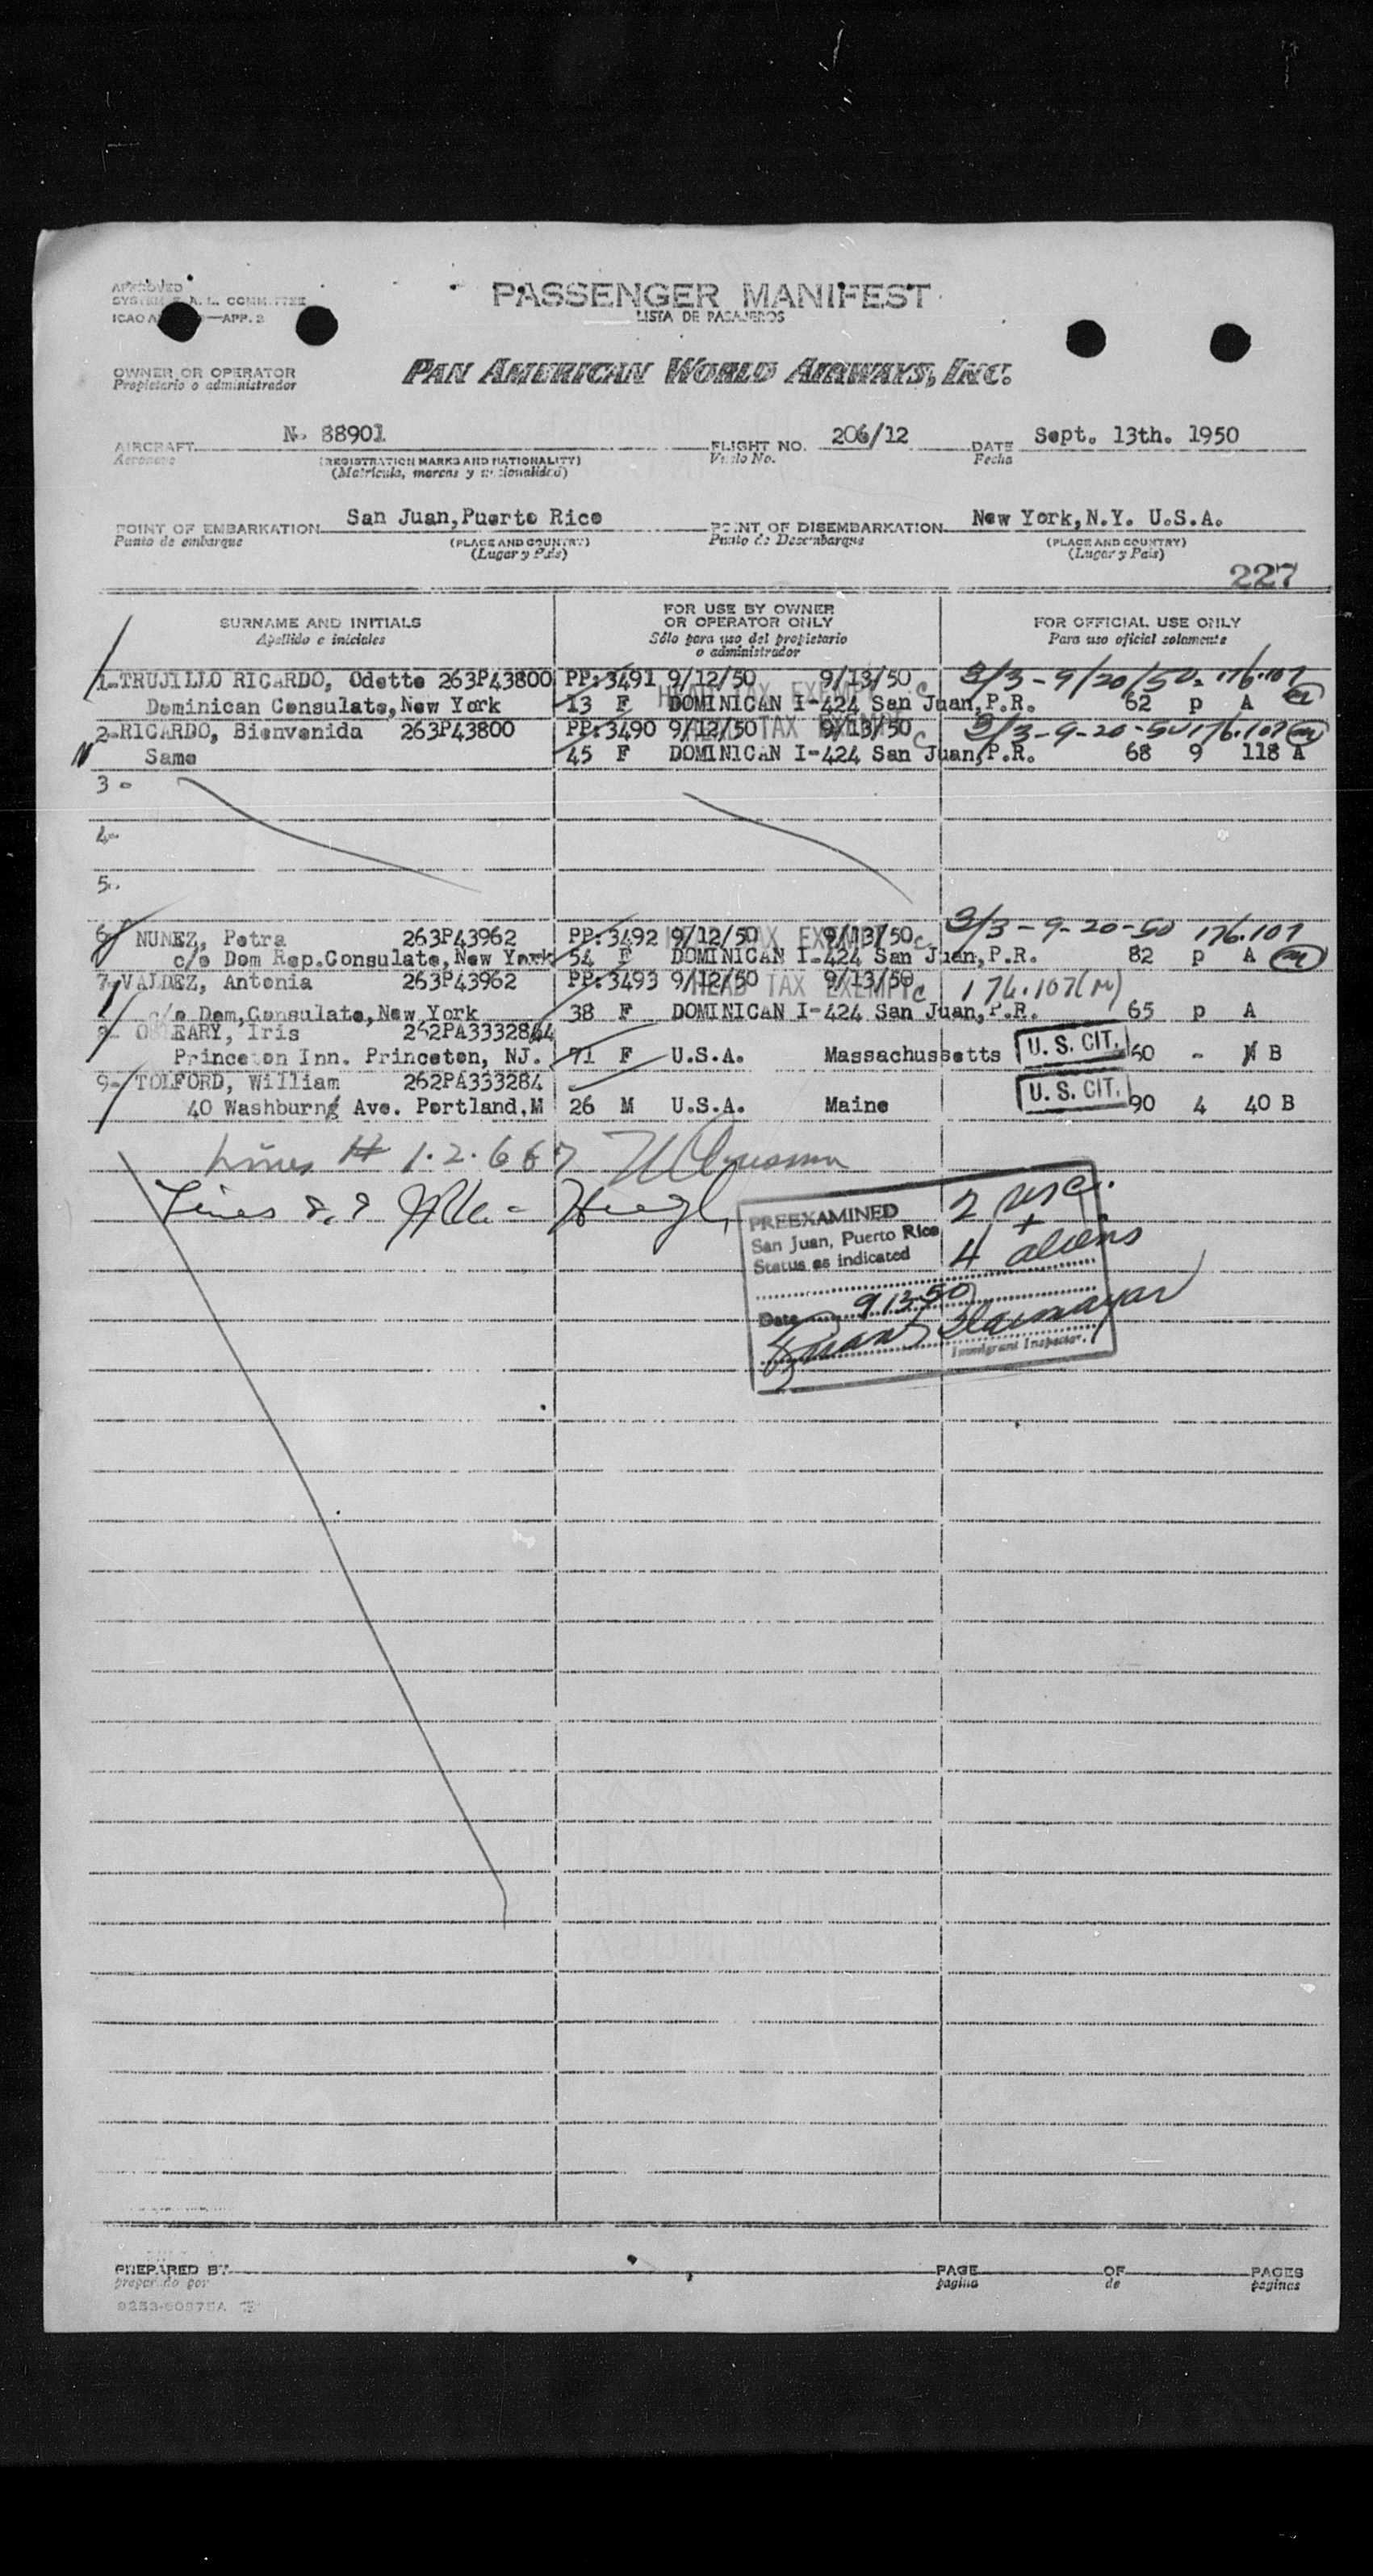 APPROVED
SYSTEM F. A. L. COMMITTEE
ICAO A —APP. 2
PASSENGER MANIFEST
LISTA DE PASAJEROS
OWNER OR OPERATOR
Propietario o administrador
PAN AMERICAN WORLD AIRWAYS, INC.
AIRCRAFT N- 88901 FLIGHT NO. 206/12 DATE Sept. 13th. 1950
Aeronave (REGISTRATION MARKS AND NATIONALITY) Vuelo No. Fecha
(Matricula, marcas y nacionalidad)
POINT OF EMBARKATION San Juan, Puerto Rico POINT OF DISEMBARKATION New York, N.Y. U.S.A.
Punto de embarque (PLACE AND COUNTRY) Punto de Desembarque (PLACE AND COUNTRY)
(Lugar y Pais) (Lugar y Pais)
227
SURNAME AND INITIALS FOR USE BY OWNER OR OPERATOR ONLY FOR OFFICIAL USE ONLY
Apellido e iniciales Sólo para uso del propietario o administrador Para uso oficial solamente
1-TRUJILLO RICARDO, Odette 263P43800 PP:3491 9/12/50 9/13/50 3/3-9/20/50- 176.107
HEAD TAX EXEMPT C
Dominican Consulate, New York 13 F DOMINICAN I-424 San Juan, P.R. 62 p A m
2-RICARDO, Bienvenida 263P43800 PP:3490 9/12/50 9/13/50 3/3-9-20-50 176.107 m
TAX EXEMPT C
Same 45 F DOMINICAN I-424 San Juan, P.R. 68 9 118 A
3-
4-
5-
6- NUNEZ, Petra 263P43962 PP:3492 9/12/50 9/13/50 3/3-9-20-50 176.107
TAX EXEMPT C
c/o Dom Rep.Consulate, New York 54 F DOMINICAN I-424 San Juan, P.R. 82 p A m
7-VALDEZ, Antonia 263P43962 PP:3493 9/12/50 9/13/50 176.107(M)
HEAD TAX EXEMPT C
c/o Dom, Consulate, New York 38 F DOMINICAN I-424 San Juan, P.R. 65 p A
EARY, Iris
Princeton Inn. Princeton, NJ. 71 F U.S.A. Massachussetts U. S. CIT. 60 - B
9- TOLFORD, William 262PA333284
40 Washburn Ave. Portland, M 26 M U.S.A. Maine U. S. CIT. 90 4 40 B
Lines # 1.2.6&7
Lines 8, 9
PREEXAMINED 2 USC.
San Juan, Puerto Rico +
Status as indicated 4 aliens
Date 9 13 50
Immigrant Inspector.
PREPARED BY PAGE OF PAGES
preparado por pagina de paginas